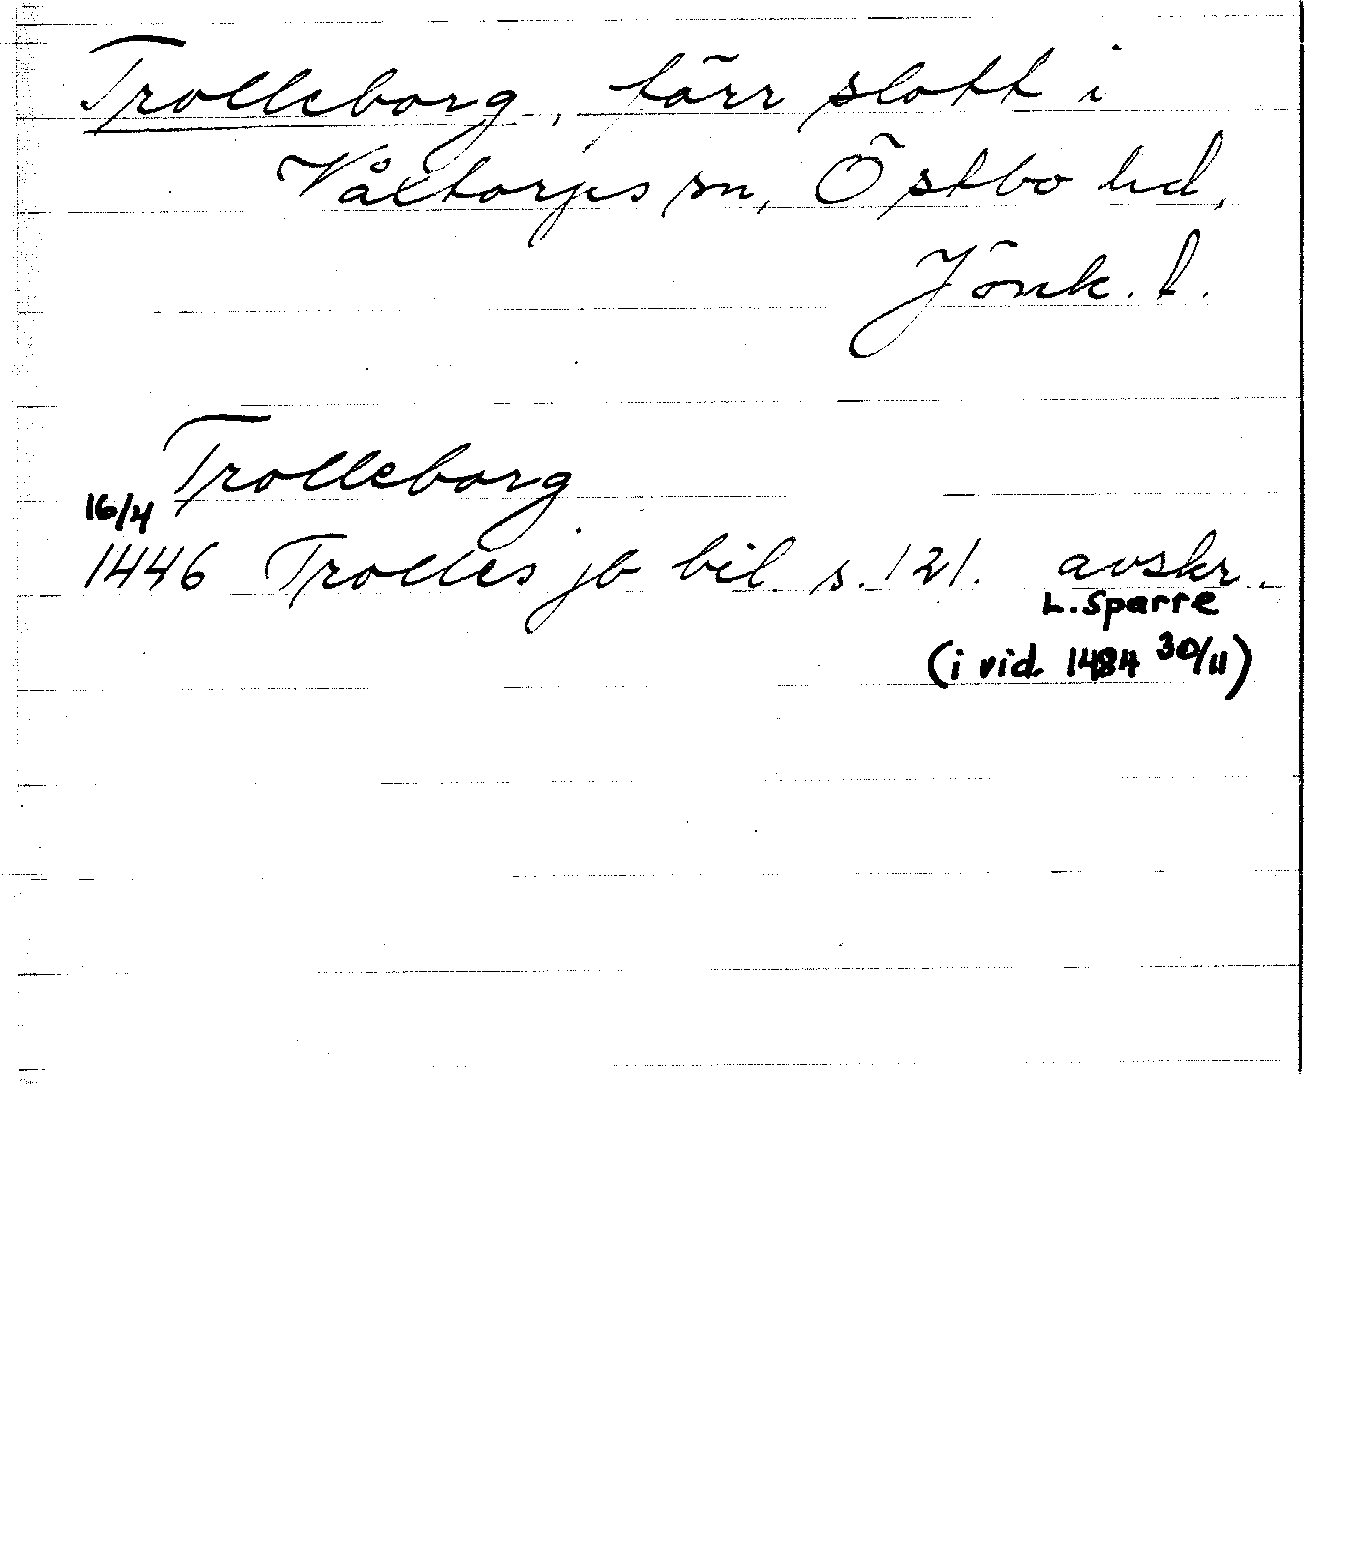 Trolleborg, förr slott i
Våltorps sn, Östbo hd,
Jönk. l.
Trolleborg
16/4
1446 Trolles jb bil s. 121. avskr.
L. Sparre
(i vid. 1484 30/11)